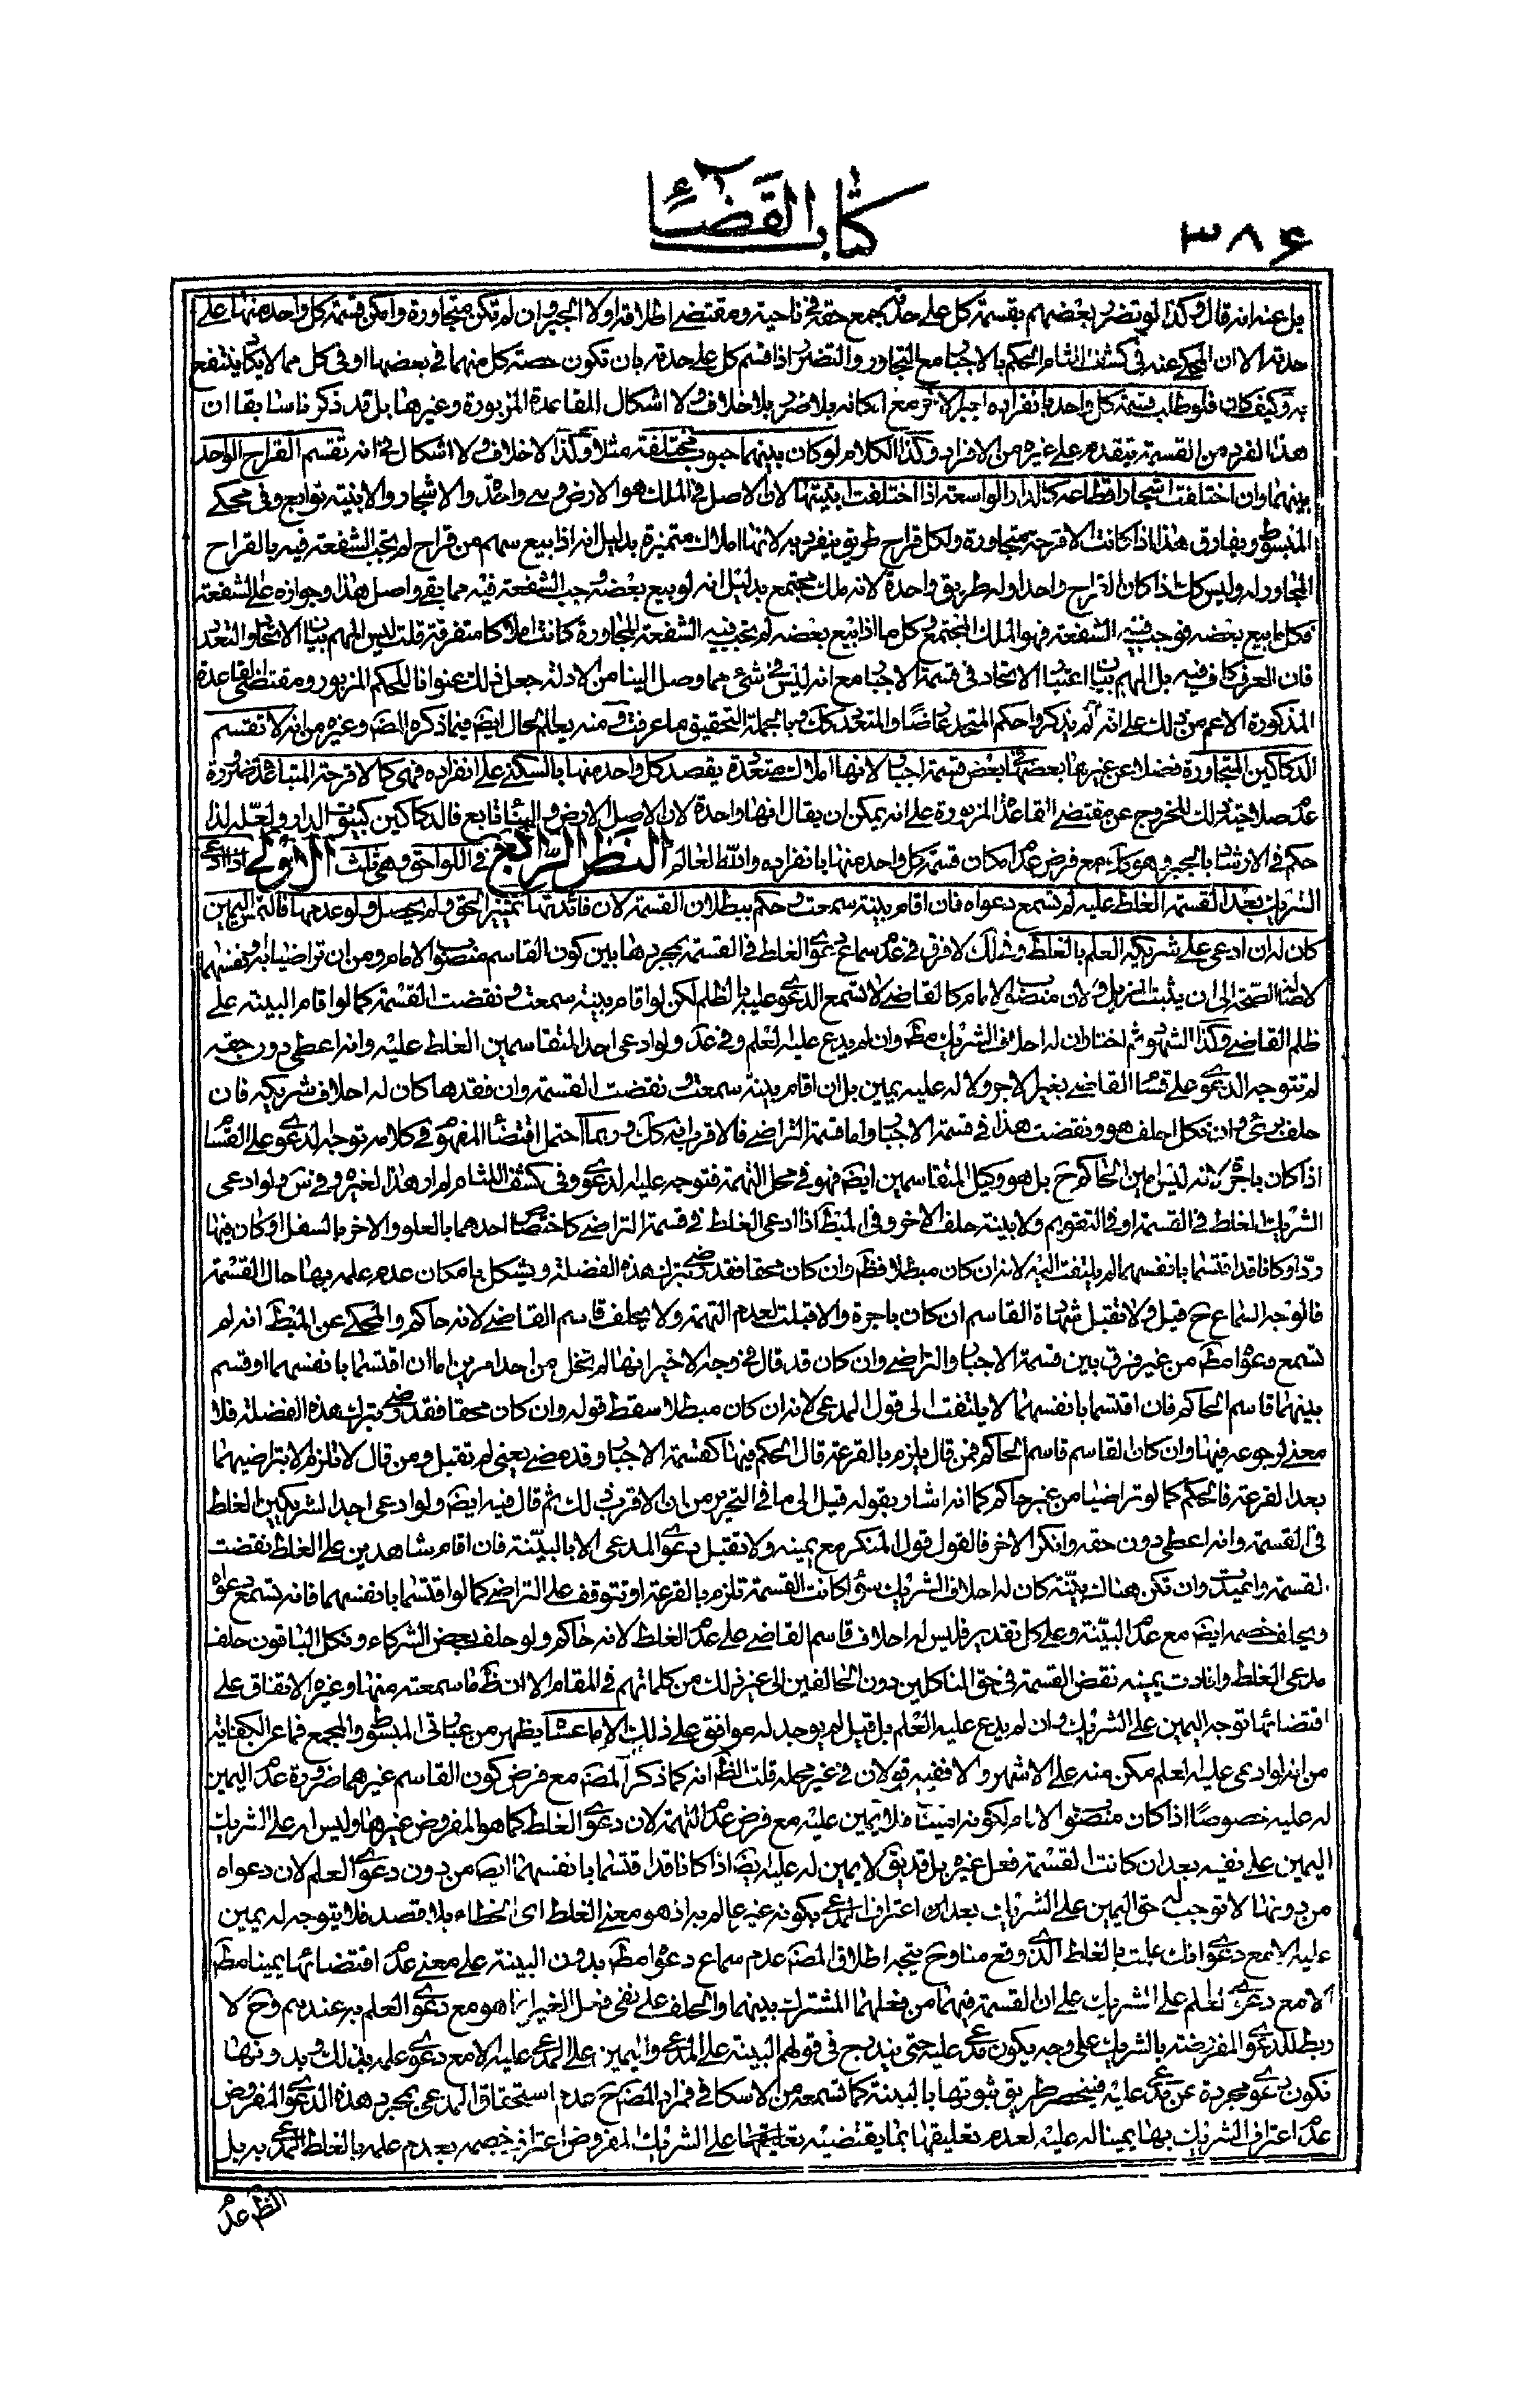 ٣٨۶
كتاب القضاء
بل عنه انه قال وكذا لو تضرر بعضهم بقسمة كل على حدة جمع حقه فى ناحية ومقتضى اطلاقه اولا الجبر وان لم تكن متجاورة وامكن قسمة كل واحد منها على
حدته الا ان المحكى عنه فى كشف اللثام الحكم بالاجبار مع التجاور والتضرر اذا قسم كل على حدته بان تكون حصة كل منهما فى بعضها او فى كل مما لا يكاد ينتفع
به وكيف كان فلو طلب قسمة كل واحد بانفراده اجبر الاخر مع امكانه بلا ضرر بلا خلاف ولا اشكال للقاعدة المزبورة وغيرها بل قد ذكرنا سابقا ان
هذا الفرد من القسمة يتقدم على غيره من الافراد وكذا الكلام لو كان بينهما حبوب مختلفة مثلا وكذا لا خلاف ولا اشكال فى انه تقسم القراح الواحد
بينهما وان اختلفت اشجار اقطاعه كالدار الواسعة اذا اختلفت ابنيتها لان الاصل فى الملك هو الارض وهى واحدة والاشجار والابنية توابع وفى محكى
المبسوط ويفارق هذا اذا كانت الاقرحة متجاورة ولكل قراح طريق ينفرد به لانها املاك متميزة بدليل انه اذا بيع سهم من قراح لم تجب الشفعة فيه بالقراح
المجاور له وليس كك اذا كان القراح واحدا وله طريق واحدة لانه ملك مجتمع بدليل انه لو بيع بعضه وجب الشفعة فيه مما بقى واصل هذا وجوازه على الشفعة
فكلما بيع بعضه فوجب فيه الشفعة فهو الملك المجتمع وكل ما اذا بيع بعضه لم تجب فيه الشفعة للمجاورة كانت املاكا متفرقة قلت ليس المهم بيان الاتحاد والتعدد
فان العرف كاف فيه بل المهم بيان اعتبار الاتحاد فى قسمة الاجبار مع انه ليس فى شئ مما وصل الينا من الادلة جعل ذلك عنوانا للحكم المزبور ومقتضى القاعدة
المذكورة الاعم من ذلك على انه لم يذكروا حكم المتحد عاضا والمتعدد كك وبالجملة التحقيق ما عرفت ومنه يعلم الحال ايضا فيما ذكره المصَ وغيره من انه لا تقسم
الدكاكين المتجاورة فضلا عن غيرها بعضها فى بعض قسمة اجبار لانها املاك متعددة يقصد كل واحد منها بالسكنى على انفراده فهى كالاقرحة المتباعدة ضرورة
عدم صلاحية ذلك للخروج عن مقتضى القاعدة المزبورة على انه يمكن ان يقال انها واحدة لان الاصل الارض والبناء تابع فالدكاكين كبيوت الدار ولعله لذا
حكم فى الارشاد بالجبر وهو كك مع فرض عدم امكان قسمة كل واحد منها بانفراده والله العالم النظر الرابع فى اللواحق وهى ثلث الاولى اذا ادعى
الشريك بعد القسمة الغلط عليه لم تسمع دعواه فان اقام بينة سمعت وحكم ببطلان القسمة لان فائدتها تمييز الحق ولم يحصل ولو عدمها فالتمس اليمين
كان له ان ادعى على شريكه العلم بالغلط وذلك لا فرق فى عدم سماع دعوى الغلط فى القسمة بمجردها بين كون القاسم منصوب الامام ومن ان تراضيا به ونفسهما
لاصالة الصحة الى ان يثبت المزيل ولان منصوب الامام كالقاضى لا تسمع الدعوى عليه بالظلم لكن لو اقام بينة سمعت ونقضت القسمة كما لو اقام البينة على
ظلم القاضى وكذا الشهود ثم اختار ان له احلاف الشريك مطَ وان لم يدع عليه العلم وفى عد ولو ادعى احد المتقاسمين الغلط عليه وانه اعطى دون حقه
لم تتوجه الدعوى على قسام القاضى بغير الاجر ولا له عليه يمين بل ان اقام بينة سمعت ونقضت القسمة وان فقدها كان له احلاف شريكه فان
حلف برئ وان نكل احلف هو ونقضت هذا فى قسمة الاجبار واما قسمة التراضى فالاقرب انه كك وربما احتمل اقتضاء المفهوم فى كلامه توجه الدعوى على القسام
اذا كان باجرة لانه ليس امين الحاكم حَ بل هو وكيل المتقاسمين ايضَ فهو فى محل التهمة فتوجه عليه الدعوى وفى كشف اللثام لم اره هذا لغيره وفى س ولو ادعى
الشريك الغلط فى القسمة او فى التقويم ولا بينة حلف الاخر وفى المبَط اذا ادعى الغلط فى قسمة التراضى كاختصاص احدهما بالعلو والاخر بالسفل او كان فيها
رد او كانا قد اقتسما بانفسهما لم يلتفت اليه لانه ان كان مبطلا فظَ وان كان محقا فقد رضى بترك هذه الفضلة ويشكل بامكان عدم علمه بها حال القسمة
فالوجه السماع حَ قيل ولا تقبل شهادة القاسم ان كان باجرة والا قبلت لعدم التهمة ولا يحلف قاسم القاضى لانه حاكم والمحكى عن المبَط انه لم
تسمع دعواه مطَ من غير فرق بين قسمة الاجبار والتراضى وان كان قد قال فى وجه الاخير انها لم تخل من احد امرين اما ان اقتسما بانفسهما او قسم
بينهما قاسم الحاكم فان اقتسما بانفسهما لا يلتفت الى قول المدعى لانه ان كان مبطلا سقط قوله وان كان محقا فقد رضى بترك هذه الفضلة فلا
معنى لرجوعه فيها وان كان القاسم قاسم الحاكم فمن قال يلزم بالقرعة قال الحكم فيها كقسمة الاجبار وقد مضى يعنى لم تقبل ومن قال لا تلزم الا بتراضيهما
بعد القرعة فالحكم كما لو تراضيا من غير حاكم كما انه اشار بقوله قيل الى ما فى التحرير من ان الاقرب ذلك ثم قال فيه ايضَ ولو ادعى احد الشريكين الغلط
فى القسمة وانه اعطى دون حقه وانكر الاخر فالقول قول المنكر مع يمينه ولا تقبل دعوى المدعى الا بالبينة فان اقام شاهدين على الغلط نقضت
القسمة واعيدت وان لم تكن هناك بينة كان له احلاف الشريك سواء كانت القسمة تلزم بالقرعة او تتوقف على التراضى كما لو اقتسما بانفسهما فانه تسمع دعواه
ويحلف خصمه ايضَ مع عدم البينة وعلى كل تقدير فليس له احلاف قاسم القاضى على عدم الغلط لانه حاكم ولو حلف بعض الشركاء ونكل الباقون حلف
مدعى الغلط وافادت يمينه نقض القسمة فى حق الناكلين دون الحالفين الى غير ذلك من كلماتهم فى المقام الا ان ظَ ما سمعته منها وغيره الاتفاق على
اقتضائها توجه اليمين على الشريك وان لم يدع عليه العلم بل قيل لم يوجد له موافق على ذلك الا ما عساه يظهر من عبارتى المبسوط والمجمع فما عن الكفاية
من انه لو ادعى عليه العلم مكن منه على الاشهر والا ففيه قولان فى غير محله قلت الظَ انه كما ذكر المصَ مع فرض كون القاسم غيرهما ضرورة عدم اليمين
له عليه خصوصا اذا كان منصوب الامام لكونه امينا فلا يمين عليه مع فرض عدم التهمة لان دعوى الغلط كما هو المفروض غيرها وليس له على الشريك
اليمين على نفيه بعد ان كانت القسمة فعل غيره بل قد يق لا يمين له عليه ايضَ اذا كانا قد اقتسما بانفسهما ايضَ من دون دعوى العلم لان دعواه
من دونها لا توجب له حق اليمين على الشريك بعد اعتراف المدعى بكونه غير عالم به اذ هو معنى الغلط اى الخطاء بلا قصد فلا يتوجه له يمين
عليه الا مع دعوى انك علمت بالغلط الذى وقع منا وحَ يتجه اطلاق المصَ عدم سماع دعواه مطَ بدون البينة على معنى عدم اقتضائها يمينا مطَ
الا مع دعوى العلم على الشريك على ان القسمة فيهما من فعلهما المشترك بينهما والحلف على نفى فعل الغير انما هو مع دعوى العلم به عندهم وحَ لا
ربط للدعوى المفروضة بالشريك على وجه يكون مدعى عليه حتى يندرج فى قولهم البينة على المدعى واليمين على المدعى عليه الا مع دعوى علمه بذلك وبدونها
تكون دعوى مجردة عن مدعى عليه فينحصر طريق ثبوتها بالبينة كما تسمعه من الاسكافى فمراد المصَ حَ عدم استحقاق المدعى بمجرد هذه الدعوى المفروض
عدم اعتراف الشريك بها يمينا له عليه لعدم تعليقها بما يقتضيه تعليقها على الشريك المفروض اعتراف خصمه بعدم علمه بالغلط المدعى به بل
الظَ عدم